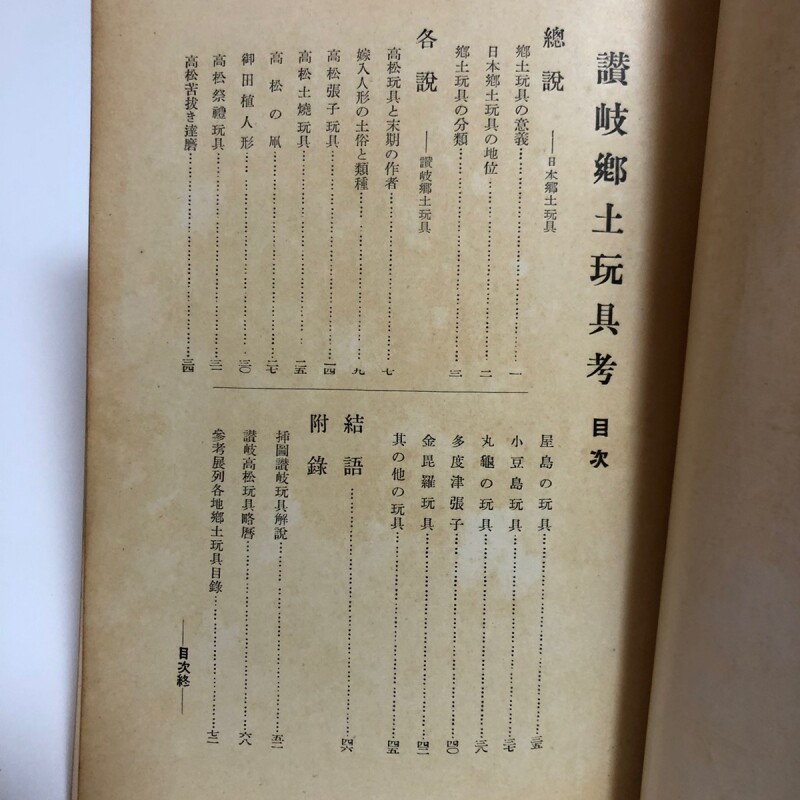 讃岐鄉土玩具考 目次
總說 ――日本鄉土玩具
鄉土玩具の意義…………一
日本鄉土玩具の地位…………二
鄉土玩具の分類…………三
各說 ――讃岐鄉土玩具
高松玩具と末期の作者…………七
嫁入人形の土俗と類種…………九
高松張子玩具…………一四
高松土燒玩具…………二五
高松の凧…………二七
御田植人形…………三〇
高松祭禮玩具…………三一
高松苦拔き達磨…………三四
屋島の玩具…………三五
小豆島玩具…………三七
丸龜の玩具…………三八
多度津張子…………四〇
金毘羅玩具…………四二
其の他の玩具…………四五
結語…………四六
附錄
揷圖讃岐玩具解說…………五一
讃岐高松玩具略曆…………六八
參考展列各地鄉土玩具目錄…………七二
――目次終――